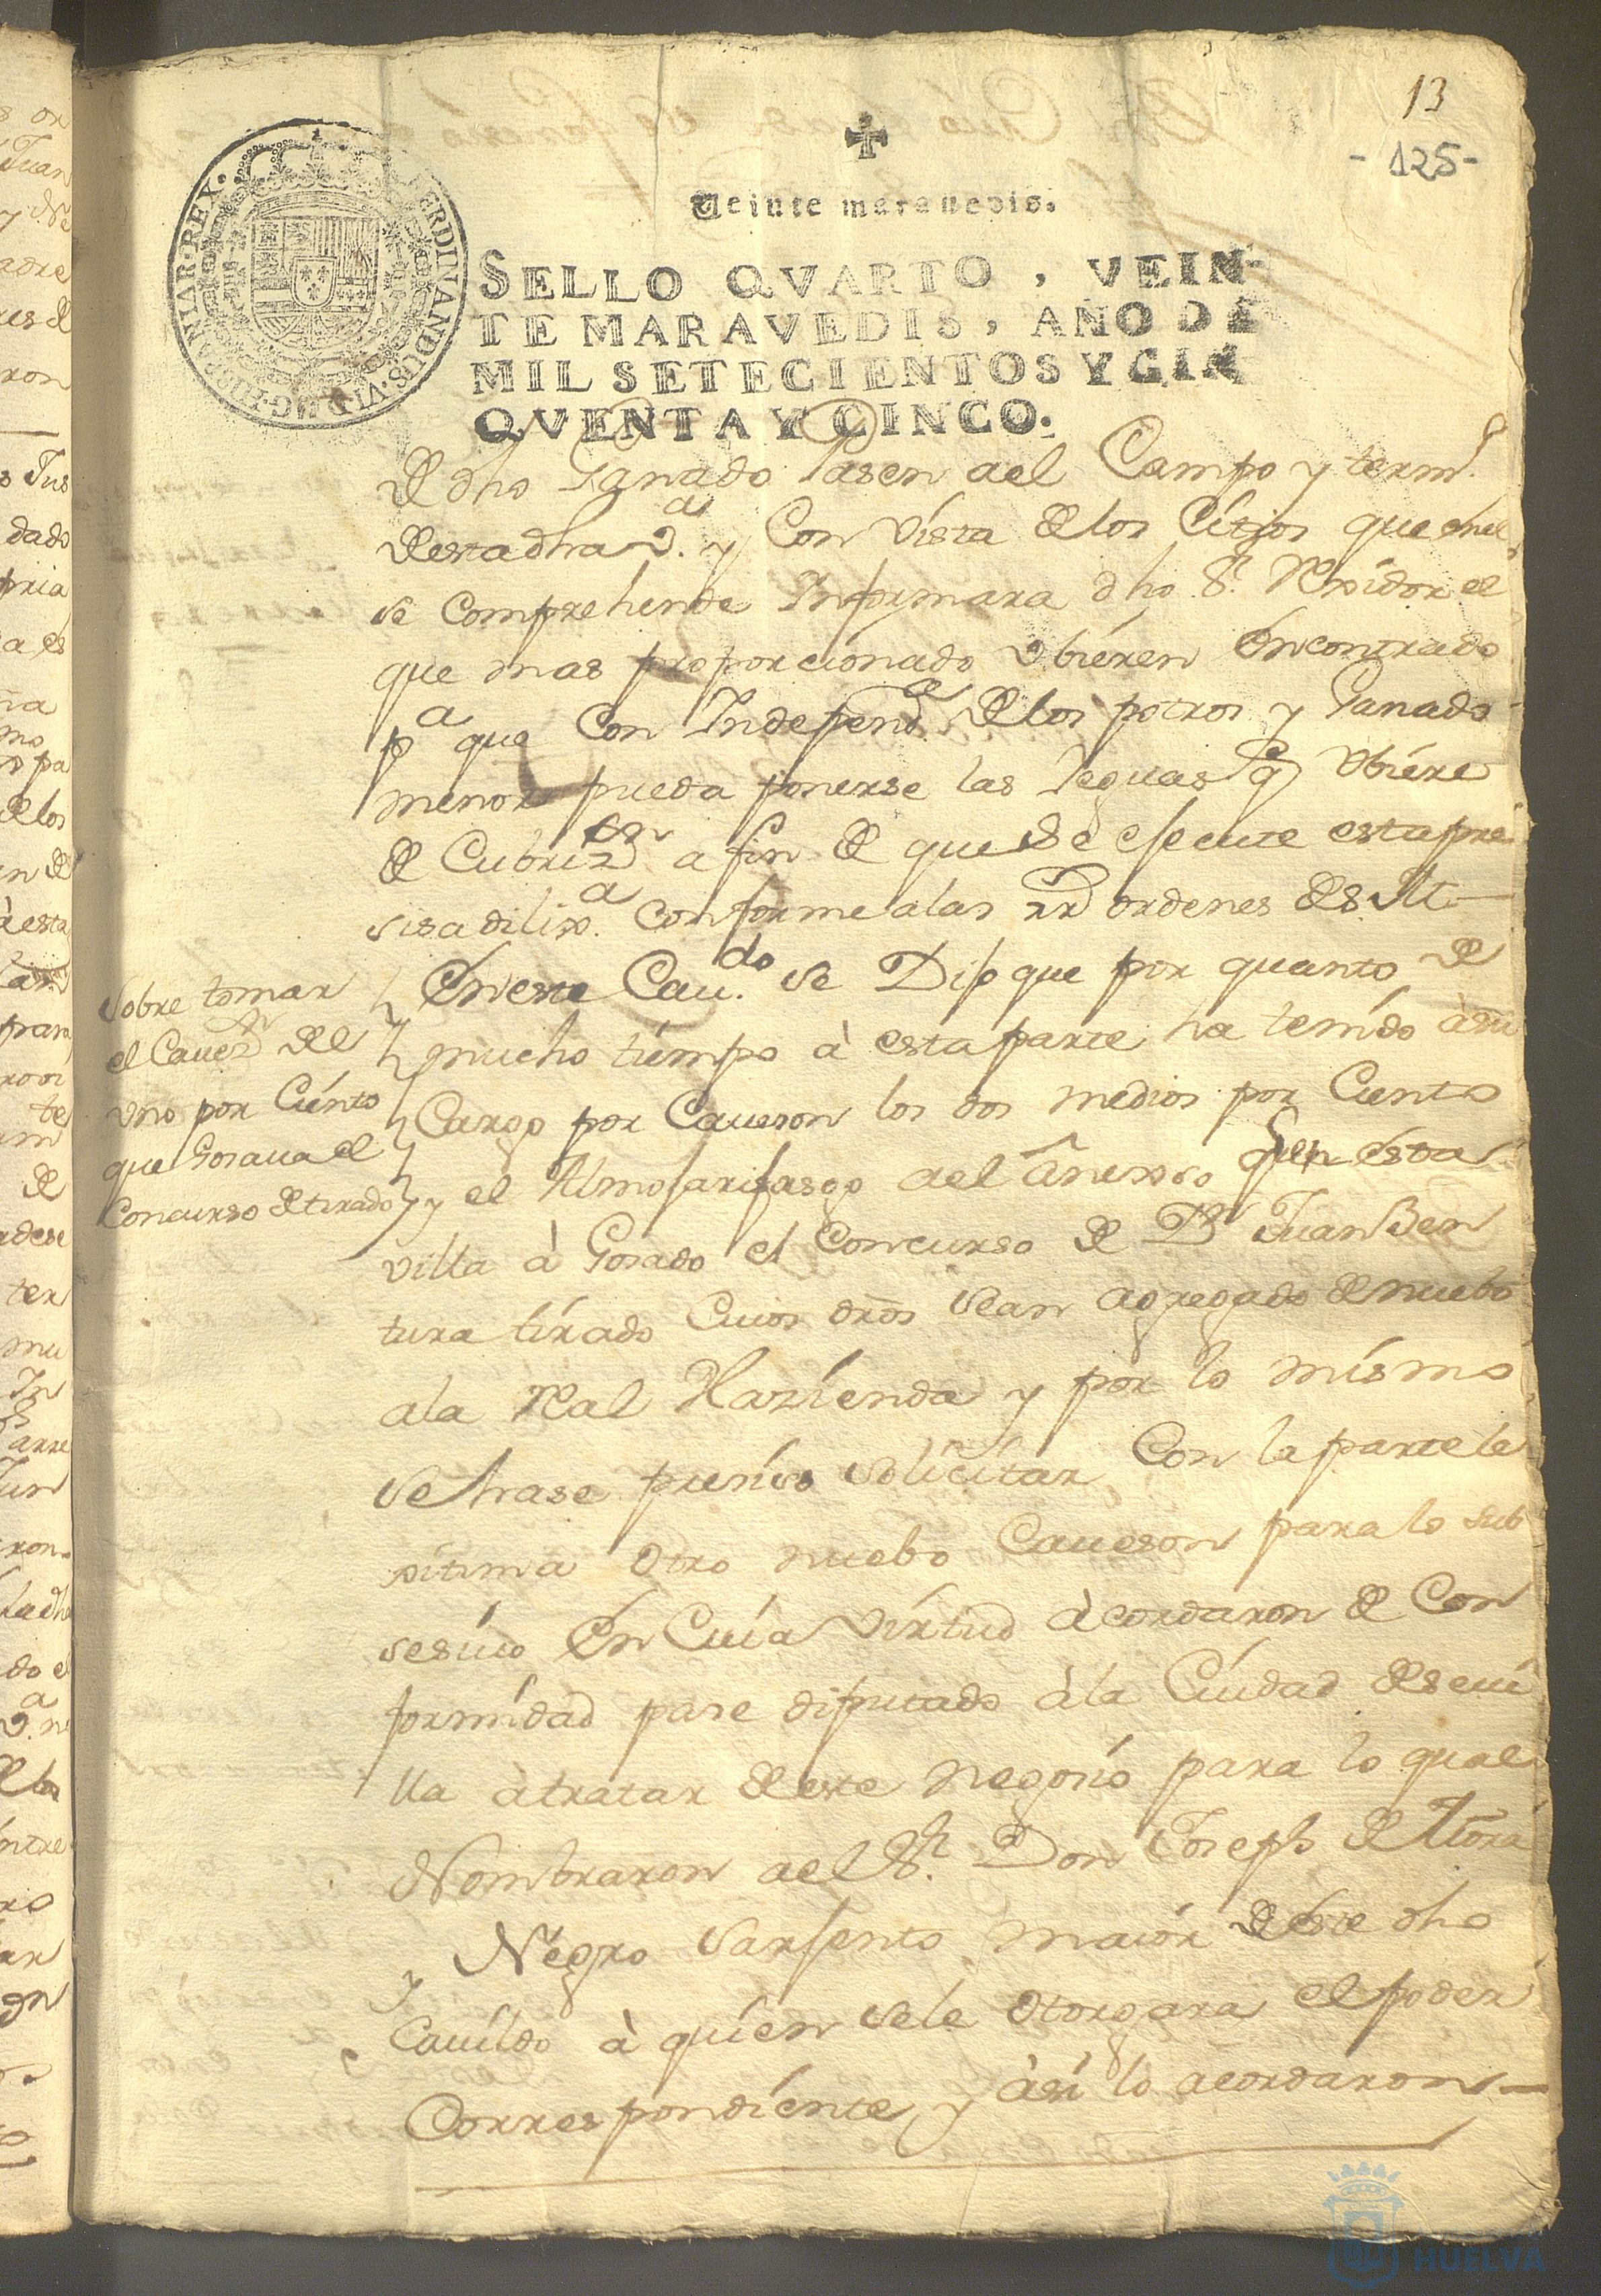 13
-125-
Veinte maravedis.
HISPANIAR·REX· FERDINANDUS·VI·D·G·
SELLO QVARTO, VEIN-
TE MARAVEDIS, AÑO DE
MIL SETECIENTOS Y CIN
QVENTA Y CINCO.
de dho Ganado Pasen ael Campo y termº.
de esta dha Vª. y Con Vista de los Citios que enel
se Comprehende Informara dho Sr. Rexidor el
que mas proporcionado Vbieren Encontrado
pª que Con Independª de los potros y Ganado
menor pueda ponerse las Yeguas q Vbiere
de Cubrir a fin de que Se execute esta pre
sisa dilixª. Conforme a las rrs ordenes de S. M.
Sobre tomar
el Cauezn del
Vno por Ciento
que Gosaua el
Concurso de tirado
En este Caudo. se Dijo que por quanto de
mucho tiempo à esta parte ha tenido à su
Cargo por Caueson los dos medios por Ciento
y el Almojarifasgo del Anexso quen esta
villa à Gosado el Concurso de Dn Juan Ben
tura tirado Cuios dros sean agregado de nuebo
a la Real Hazienda y por lo mismo
se hase presiso solicitar Con la parte le
xitima Otro nuebo Caueson para lo sub
sesiuo En Cuia Virtud àcordaron de Con
formidad pase diputado à la Ciudad de Seui
lla à tratar de este negosio para lo qual
Nombraron ael Sr. Don Joseph de Mora
y Negro Sarjento maior de este dho
Cauildo à quien se le Otorgara el poder
Correspondiente y àsi lo acordaron
HUELVA